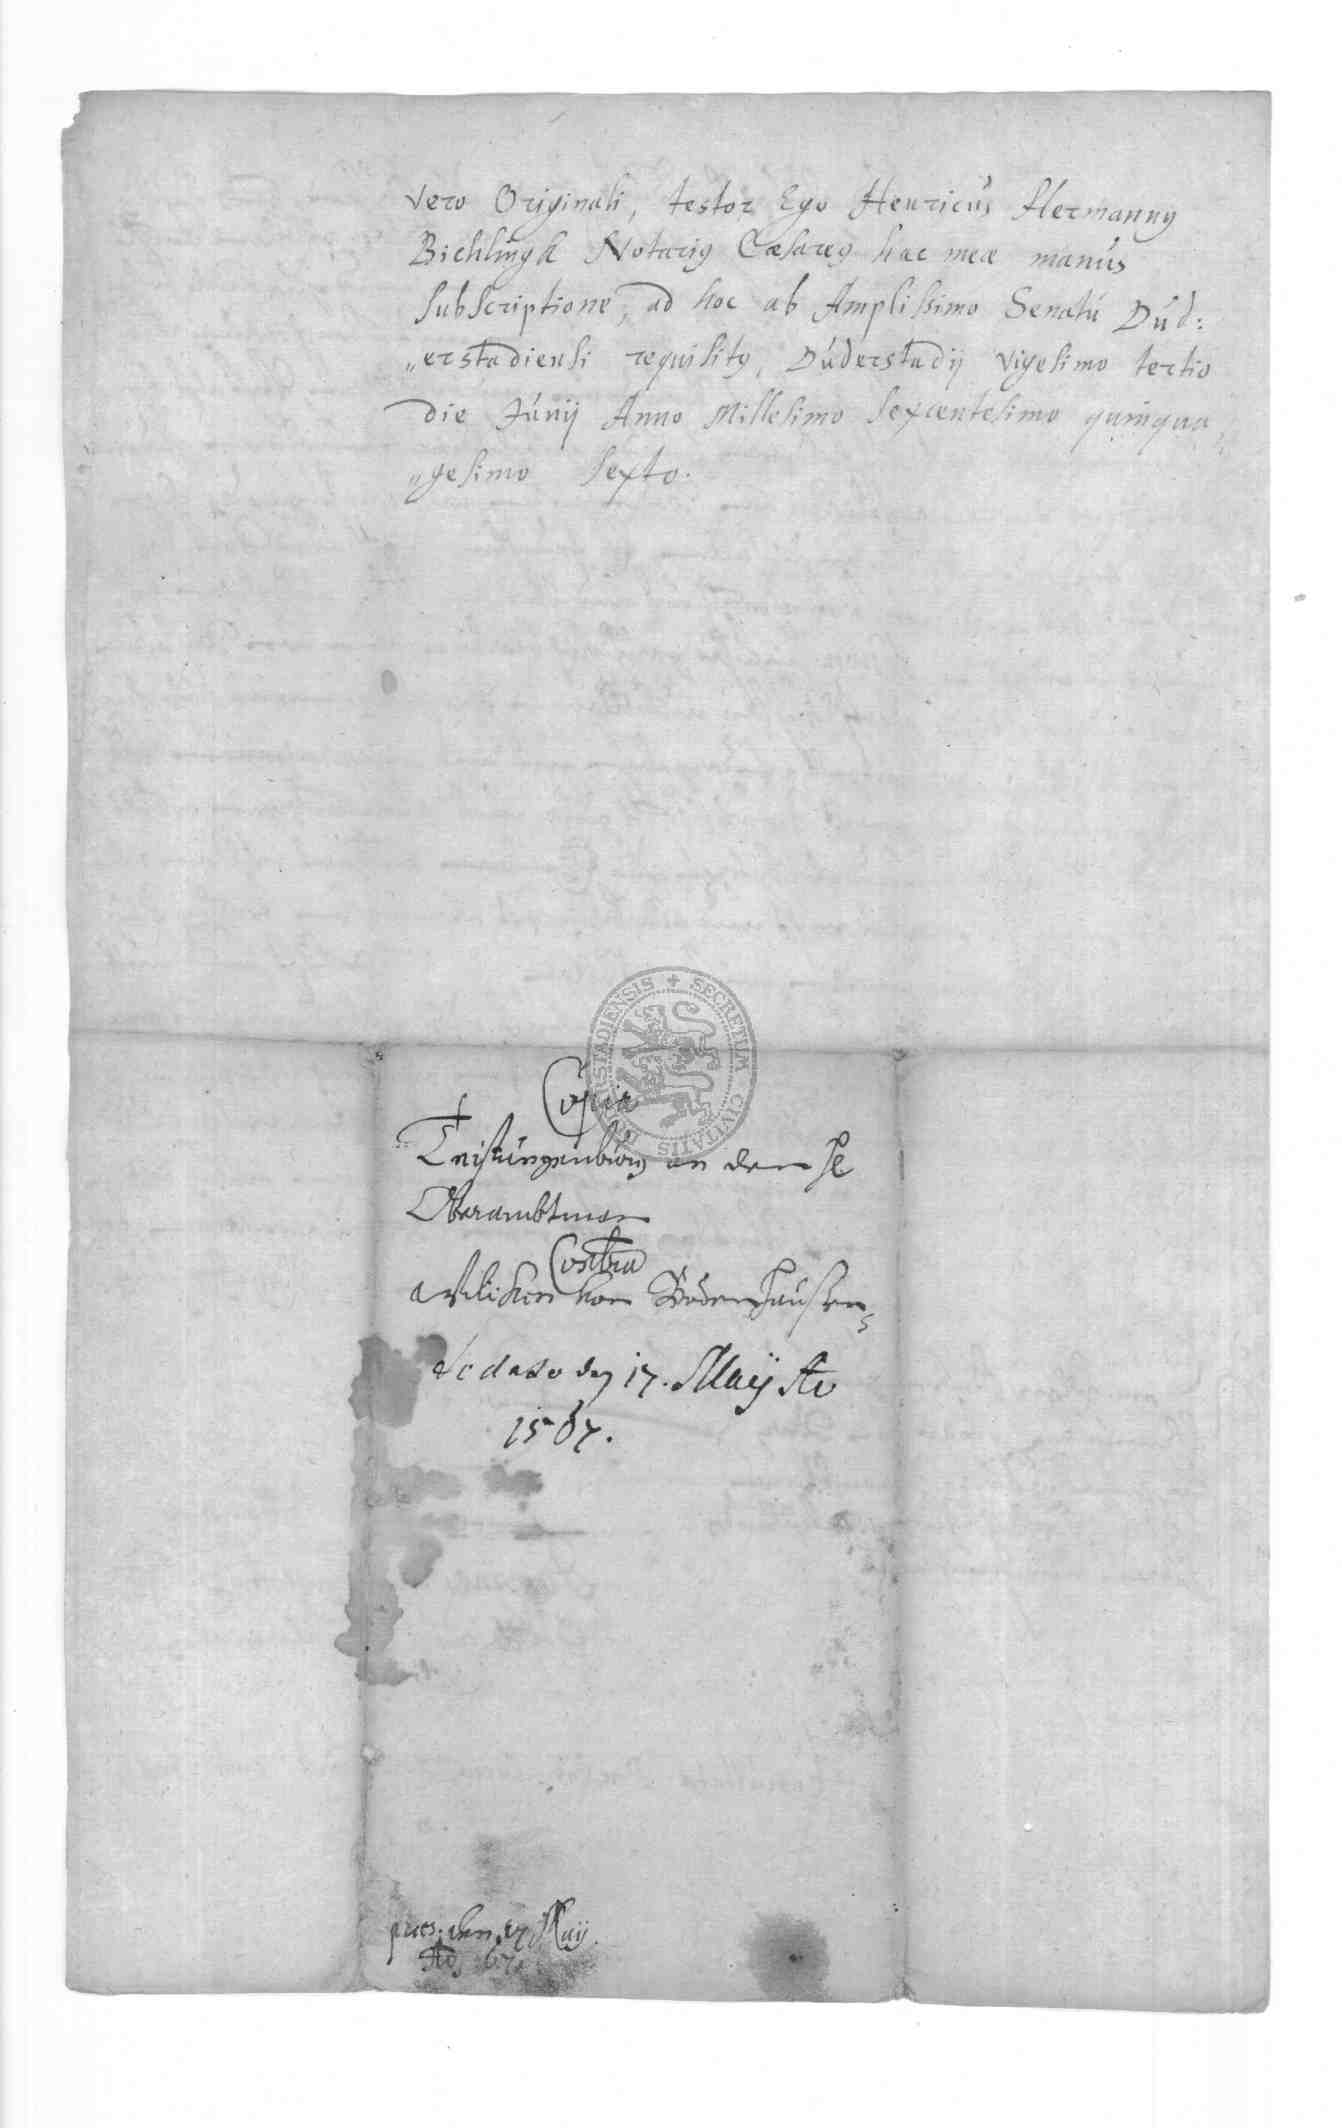 vero Originali, testor Ego Henricús Hermannus
Bichlingk Notarius Cæsareus hac meæ manús
subscriptione, ad hoc ab Amplissimo Senatú Dúd:
„erstadiensi requisitus, Dúderstadij vigesimo tertio
die Júnij Anno Millesimo sexcentesimo quinqua„
„gesimo sexto.
SECRETUM CIVITATIS
Copia
Teistúngenbúrg an den H
Oberambtman
Contra
von Bodenhaúsen
de dato den 17. Maij Ao
1567.
præs: den 27 Maij.
Ao 67.